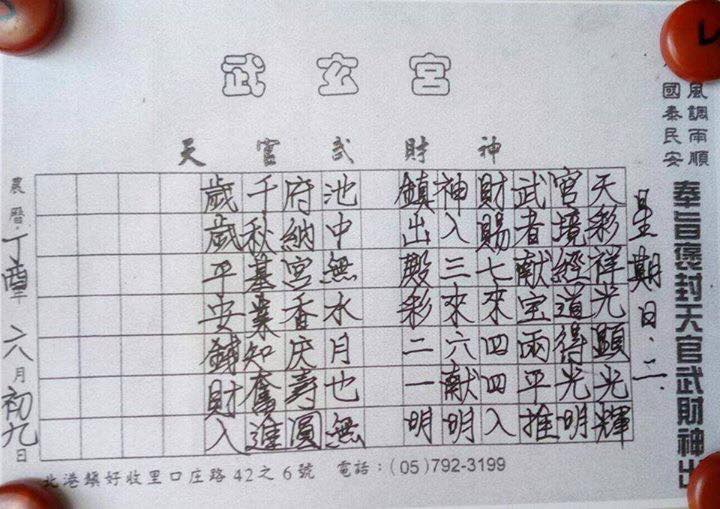 武玄宮
天官武財神
風調雨順
國泰民安
奉旨褒封天官武財神出
星期日.二
天彩祥光顯光輝
宮境經道得光明
武者献宝兩平推
財賜七來四四入
神入三來六献明
鎮出殿彩二一明
池中無水月也無
府納宮香庆寿圓
千秋基業知奮進
歲歲平安錢財入
農曆丁酉年六月初九日
北港鎮好收里口庄路42之6號 電話：(05)792-3199